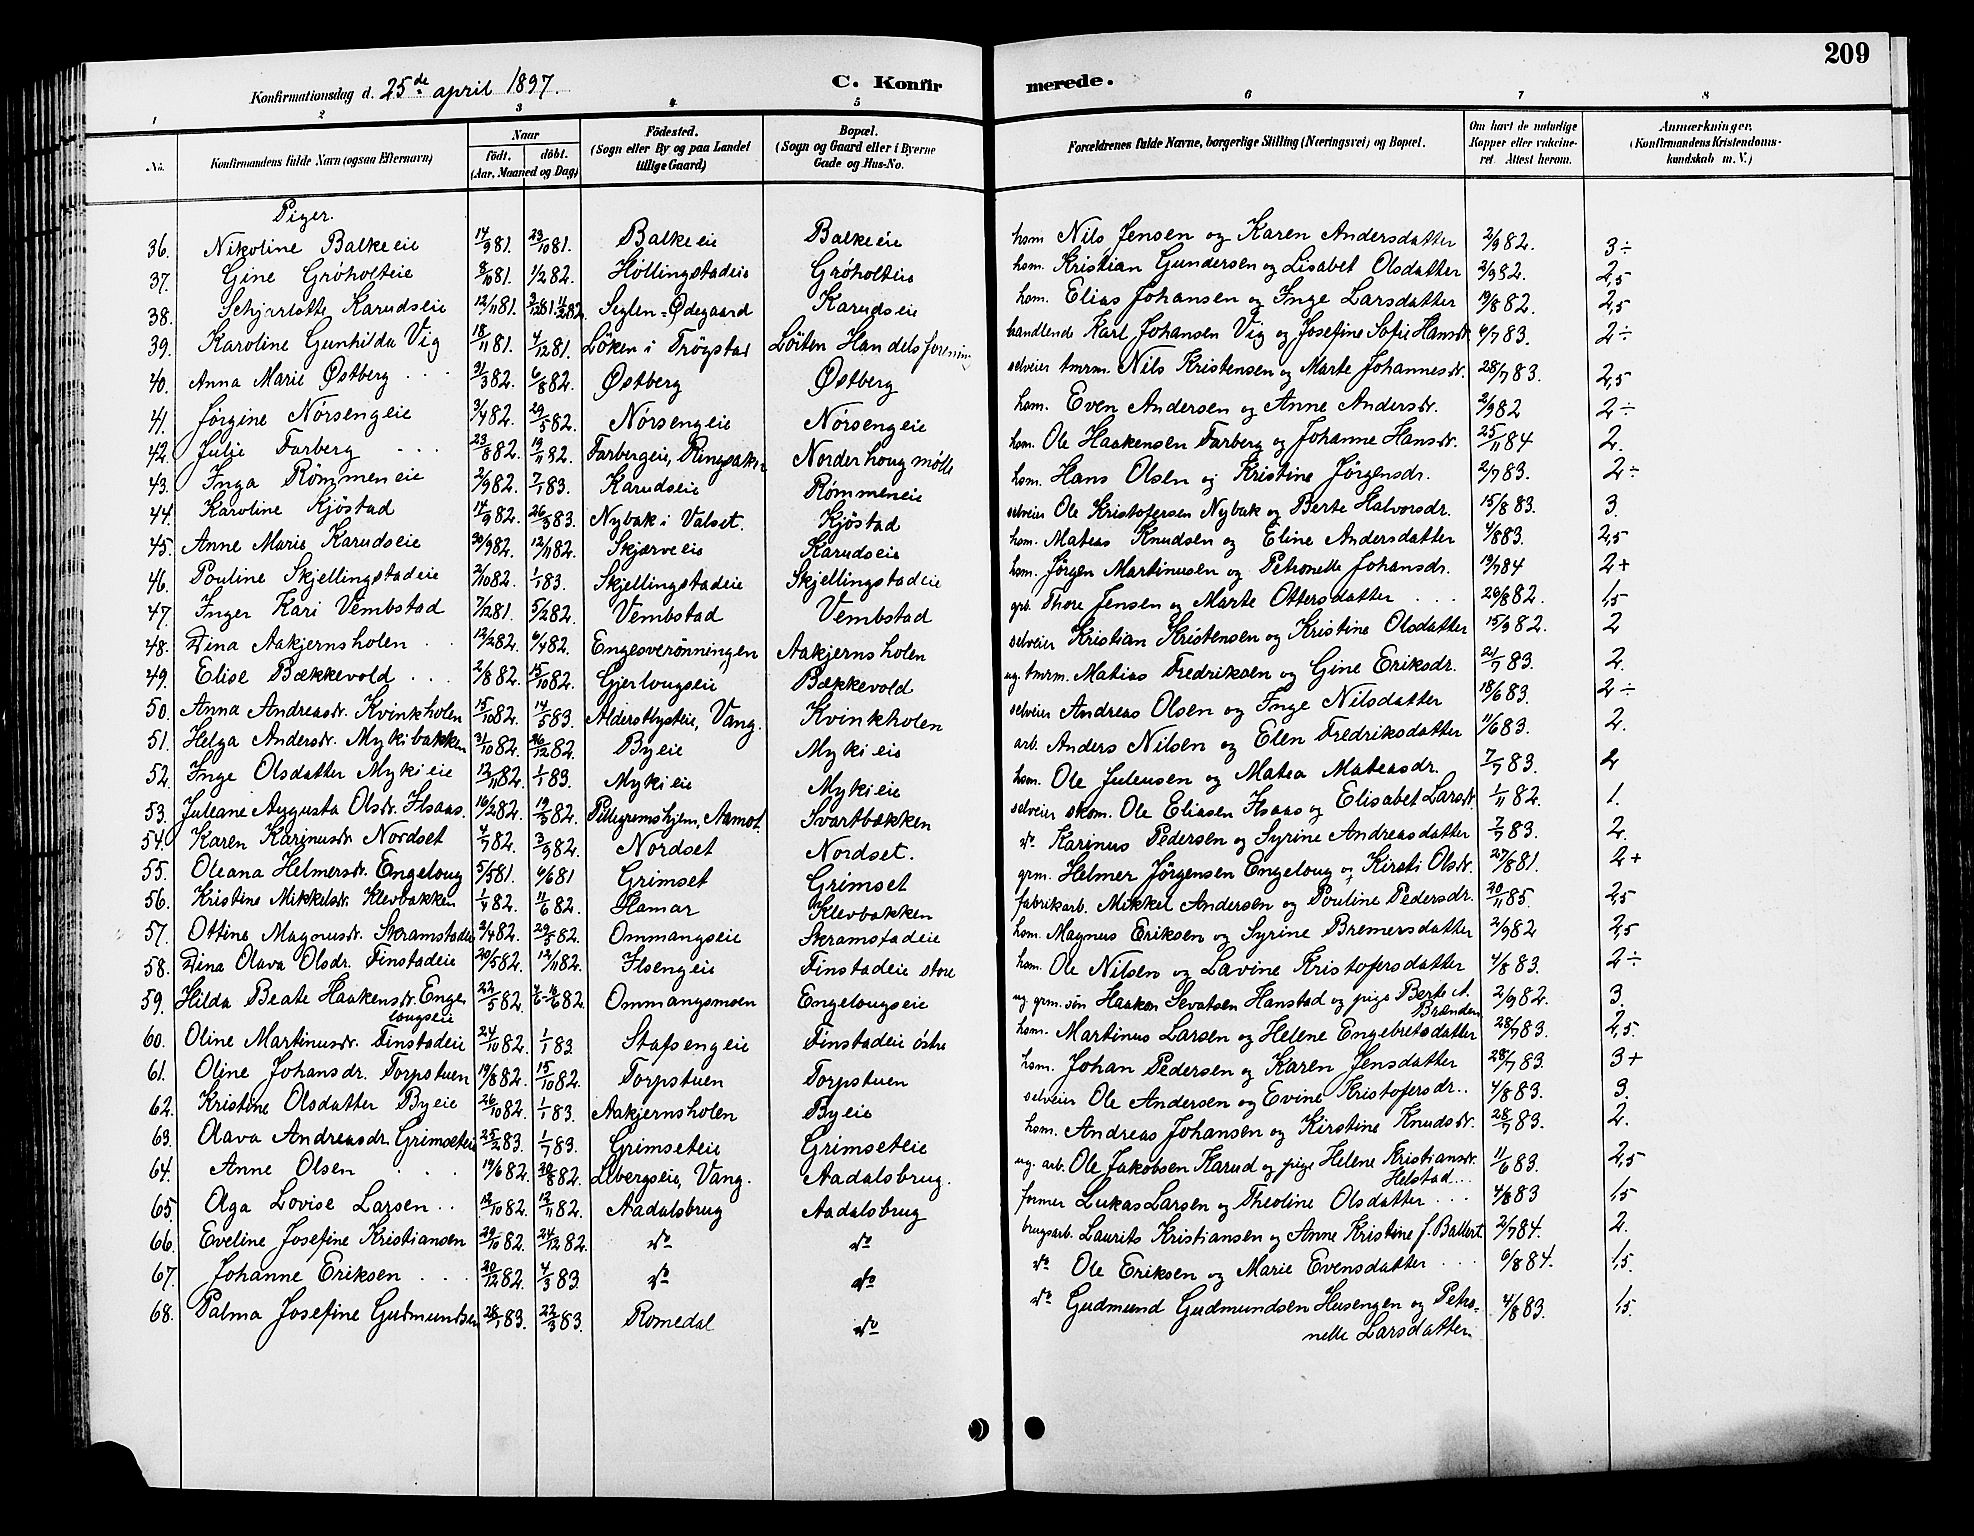 209
Konfirmationsdag d. 25de april 1897.
C. Konfir
merede.
1 2 3 4 5 6 7 8
No.
Konfirmandens fulde Navn (ogsaa Efternavn)
Naar
født. døbt.
(Aar, Maaned og Dag)
Fødested.
(Sogn eller By og paa Landet
tillige Gaard)
Bopæl.
(Sogn og Gaard eller i Byerne
Gade og Hus-No.
Forældrenes fulde Navne, borgerlige Stilling (Næringsvei) og Bopæl.
Om havt de naturlige
Kopper eller vakcine-
ret. Attest herom.
Anmærkninger.
(Konfirmandens Kristendoms-
kundskab m. V.)
Piger.
36. Nikoline Balkeeie 14/9 81. 23/10 81. Balkeeie Balkeeie hsm Nils Jensen og Karen Andersdatter 2/9 82. 3÷
37. Gine Gróholteie 8/10 81. 1/2 82. Hollingstadeie Gróholteie hsm. Kristian Gundersen og Lisabet Olsdatter 2/9 82. 2,5
38. Karudseie 12/11 81. Seglen-Ødegaard Karudseie hsm. Elias Johansen og Inge Larsdatter 19/8 82. 2,5
39. Karoline Gunhilda Vig 18/11 81. 4/12 81. Löken i Trögstad Löiten Handelsforening handlende Karl Johansen Vig og Josefine Sofie Hansdr. 6/7 83. 2÷
40. Anna Marie Østberg 31/3 82. 6/8 82. Østberg Østberg selveier tmrm. Nils Kristensen og Marte Johannesdr. 28/7 83. 2,5
41. Jørgine Nórsengeie 3/4 82. 29/5 82. Nórsengeie Nórsengeie hsm. Even Andersen og Anne Andersdr. 2/9 82 2÷
42. Julie Farberg 23/8 82. 19/11 82. Farbergeie, Ringsaker Norderhoug mølle hsm. Ole Haakensen Farberg og Johanne Hansdr. 25/11 84 2.
43. Inga Rómmeneie 2/9 82. 7/1 83. Karudseie Rómmeneie hsm. Hans Olsen og Kristine Jörgensdr. 2/7 83. 2÷
44. Karoline Kjöstad 14/9 82. 26/3 83. Nybak i Valset. Kjöstad selveier Ole Kristofersen Nybak og Berte Halvorsdr. 15/8 83. 3.
45. Anne Marie Karudseie 30/9 82. 12/11 82. Skjærveeie Karudseie hsm. Mateas Knudsen og Eline Andersdatter 4/8 83. 2,5
46. Pouline Skjellingstadeie 2/10 82. 1/1 83. Skjellingstadeie Skjellingstadeie hsm. Jörgen Martinusen og Petronelle Johansdr. 19/7 84 2+
47. Inger Kari Vembstad 7/12 81. 5/2 82. Vembstad Vembstad grb. Thore Jensen og Marte Ottersdatter 29/8 82. 1,5
48. Dina Aakjernsholen 12/2 82. 6/4 82. Engesverønningen Aakjernsholen selveier Kristian Kristensen og Kristine Olsdatter 15/9 82. 2
49. Elise Bækkevold 2/8 82. 15/10 82. Gjerlougseie Bækkevold ug. tmrm. Matias Fredriksen og Gine Eriksdr. 21/7 83. 2.
50. Anna Andreasdr. Kvinkholen 15/10 82. 14/5 83. Alderslysteie, Vang. Kvinkholen selveier Andreas Olsen og Inge Nilsdatter 18/6 83. 2÷
51. Helga Andersdr. Mykibakken 31/10 82. 26/12 82. Byeie Mykieie arb. Anders Nilsen og Elen Fredriksdatter 11/6 83. 2.
52. Inge Olsdatter Mykieie 12/11 82. 1/1 83. Mykieie Mykieie hsm. Ole Juleusen og Matea Mateasdr. 7/7 83. 2
53. Juleane Augusta Olsdr. Ilsaas 16/2 82. 19/3 82. Pillegremshjem, Aamot. Svartbækken selveier skom. Ole Eliasen Ilsaas og Elisabet Larsdr. 1/11 82. 1.
54. Karen Karinusdr. Nordset 4/7 82. 3/9 82. Nordset Nordset. do. Karinus Pedersen og Syrine Andreasdatter 7/7 83. 2.
55. Oleana Helmersdr. Engeloug 5/5 81. 6/6 81 Grimset Grimset grm. Helmer Jørgensen Engeloug og Kirsti Olsdr. 27/8 81. 2+
56. Kristine Mikkelsdr. Klevbakken 1/4 82. 11/6 82. Hamar Klevbakken fabrikarb. Mikkel Andersen og Pouline Pedersdr. 20/11 85. 2,5
57. Ottine Magnusdr. Skramstadeie 2/4 82. 29/5 82. Ommangseie Skramstadeie hsm. Magnus Eriksen og Syrine Bremersdatter 2/9 82 2,5
58. Dina Olava Olsdr. Finstadeie 20/5 82. 12/11 82. Ilsengeie Finstadeie store hsm. Ole Nilsen og Lavine Kristofersdatter 4/8 83. 2÷
59. Hilda Beate Haakensdr. Enge- 22/5 82. Ommangsmoen Engelougseie ug. grm. sön Haakon Sevatsen Hanstad og pige Berte A. 2/9 82. 3.
lougseie Brænden
60. Oline Martinusdr. Finstadeie 24/10 82. 1/1 83. Stafsengeie Finstadeie östre hsm. Martinus Larsen og Helene Engebretsdatter 28/7 83. 2,5.
61. Oline Johansdr. Torpstuen 19/8 82. 15/10 82. Torpstuen Torpstuen hsm. Johan Pedersen og Karen Jensdatter 28/7 83. 3+
62. Kristine Olsdatter Byeie 26/10 82. 1/1 83. Aakjernsholen Byeie selveier Ole Andersen og Evine Kristofersdr. 4/8 83. 3.
63. Olava Andreasdr. Grimseteie 25/2 83. 1/7 83. Grimseteie Grimseteie hsm. Andreas Johansen og Kirstine Knudsdr. 28/7 83. 2.
64. Anne Olsen 19/6 82. 20/8 82. Libergseie, Vang. Aadalsbrug. ug. arb. Ole Jakobsen Karud og pige Helene Kristiansdr. 11/6 83. 2,5
Helstad
65. Aga Lovise Larsen 12/10 82. 12/11 82. Aadalsbrug Aadalsbrug former Lukas Larsen og Theoline Olsdatter 4/8 83 1,5
66. Eveline Josefine Kristiansen 29/10 82. 24/12 82. do do brugsarb. Laurits Kristiansen og Anne Kristine f. Ballert 2/7 84. 2.
67. Johanne Eriksen 20/12 82. 4/3 83. do do do Ole Eriksen og Marie Evensdatter 6/8 84. 1,5.
68. Palma Josefine Gudmundsen 28/1 83. 22/3 83. Romedal do do Gudmund Gudmundsen Husengen og Petro- 4/8 83. 1,5
nelle Larsdatter.